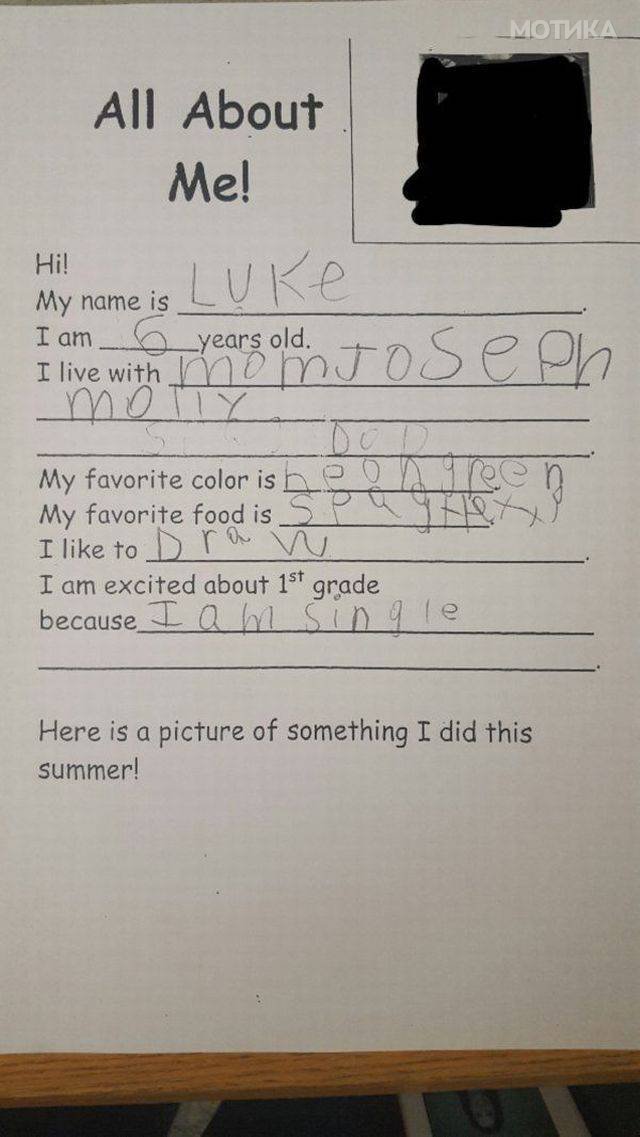 МОТИКА
All About
Me!
Hi!
My name is LUKe.
I am 6 years old.
I live with mom JOSePh
mollY
DOD.
My favorite color is neon green
My favorite food is
I like to DraW.
I am excited about 1st grade
because I am single
Here is a picture of something I did this
summer!